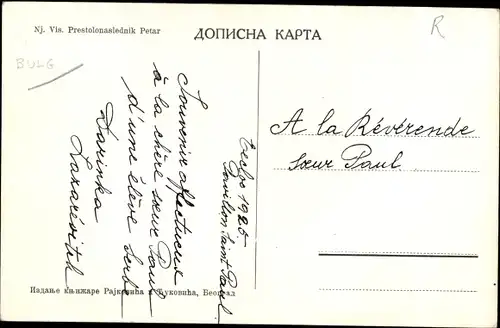 Nj. Vis. Prestolonaslednik Petar
ДОПИСНА КАРТА
R
BULG
Souvenir affectueux
à la chère sœur Paul
d'une élève serbe
Darinka
Lazarévitch
Eeclos 1925
Pavillon Saint Paul
A la Révérende
sœur Paul
Издање књижаре Рајковића и Ћуковића, Београд